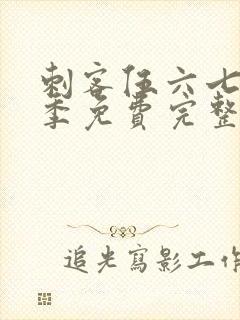 刺客伍六七
季免費完整
追光寫影工作